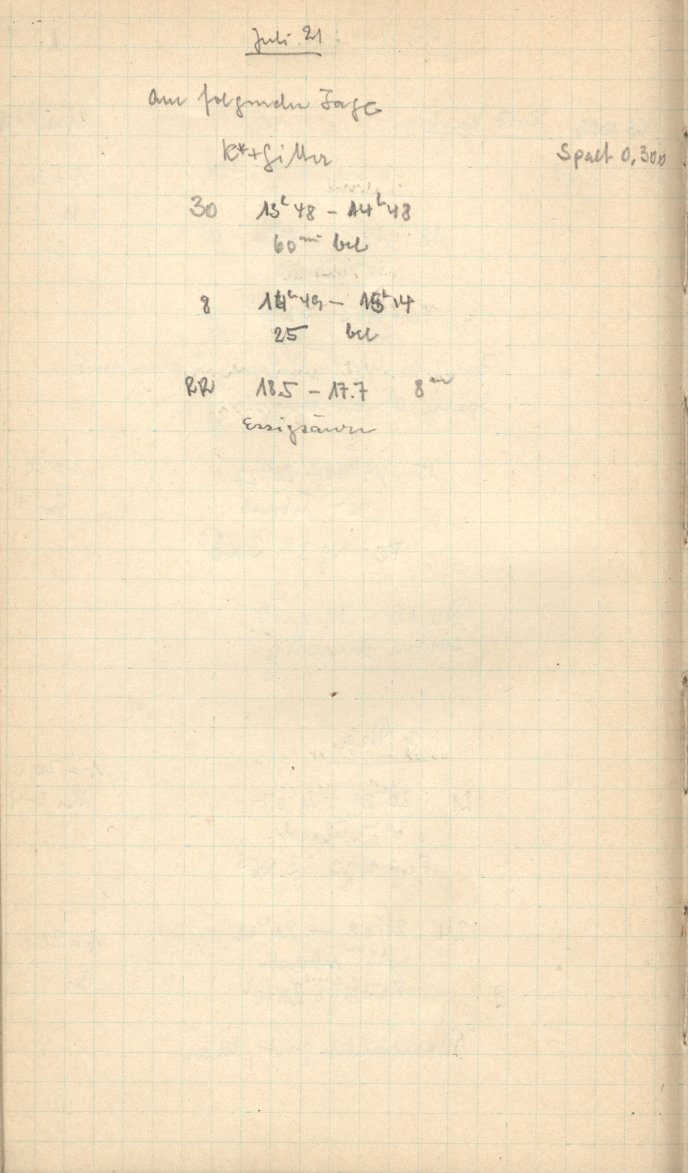 Juli 21
Am folgenden Tage
K*+Gitter Spalt 0,300
30 13h 48 – 14h 48
60 min bel
8 14h 49 – 15h 14
25 bel
RR 18.5 – 17.7 8 m
Essigsäure